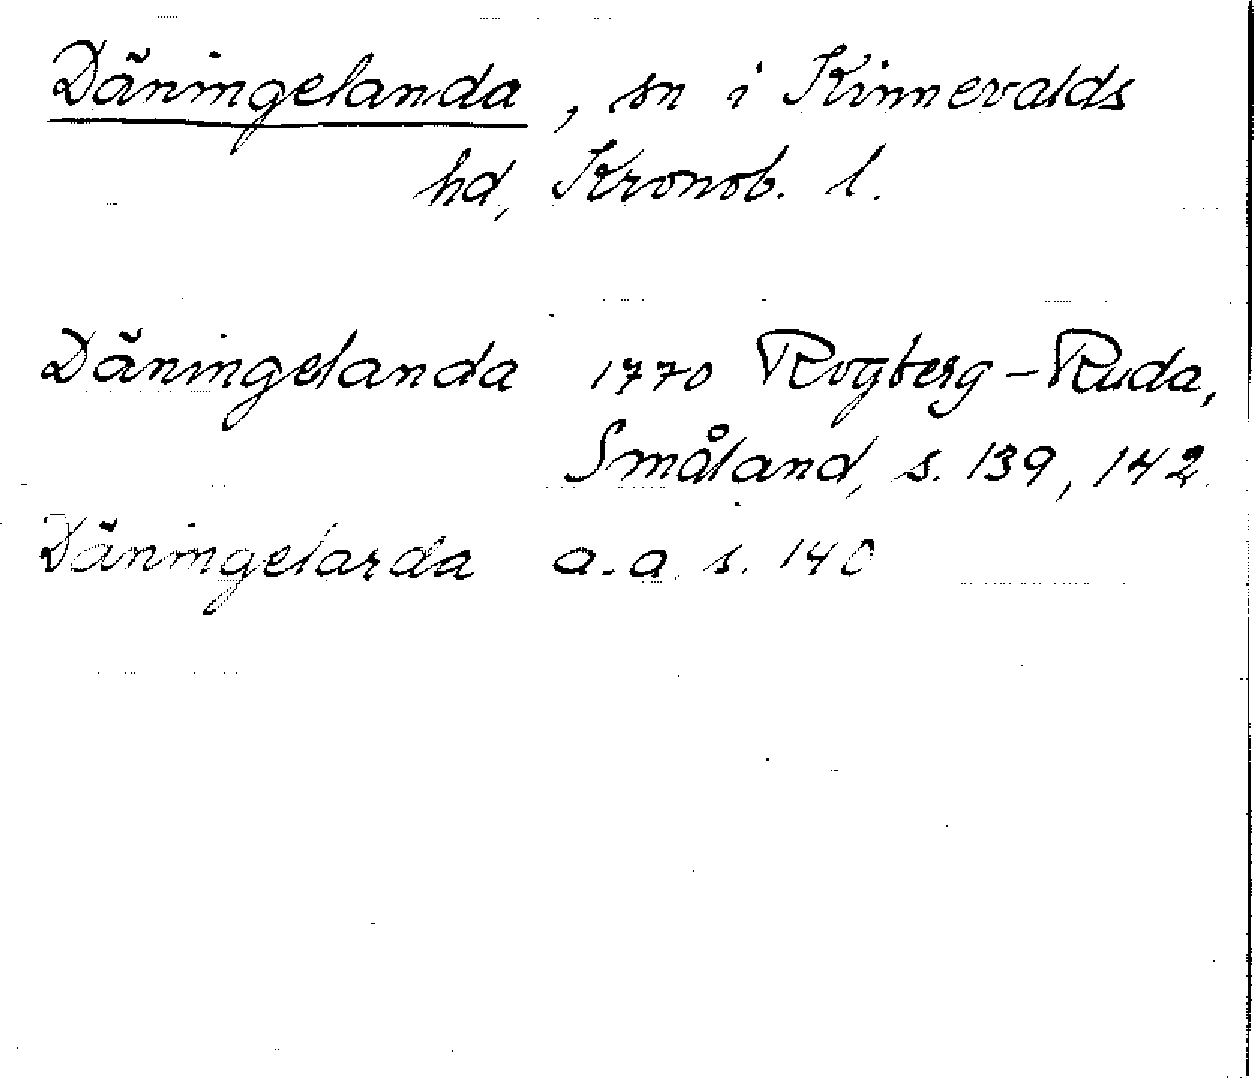 Däningelanda, sn i Kinnevalds
hd, Kronob. l.
Däningelanda 1770 Rogberg-Ruda,
Småland, s. 139, 142.
Däningelarda a.a. s. 140